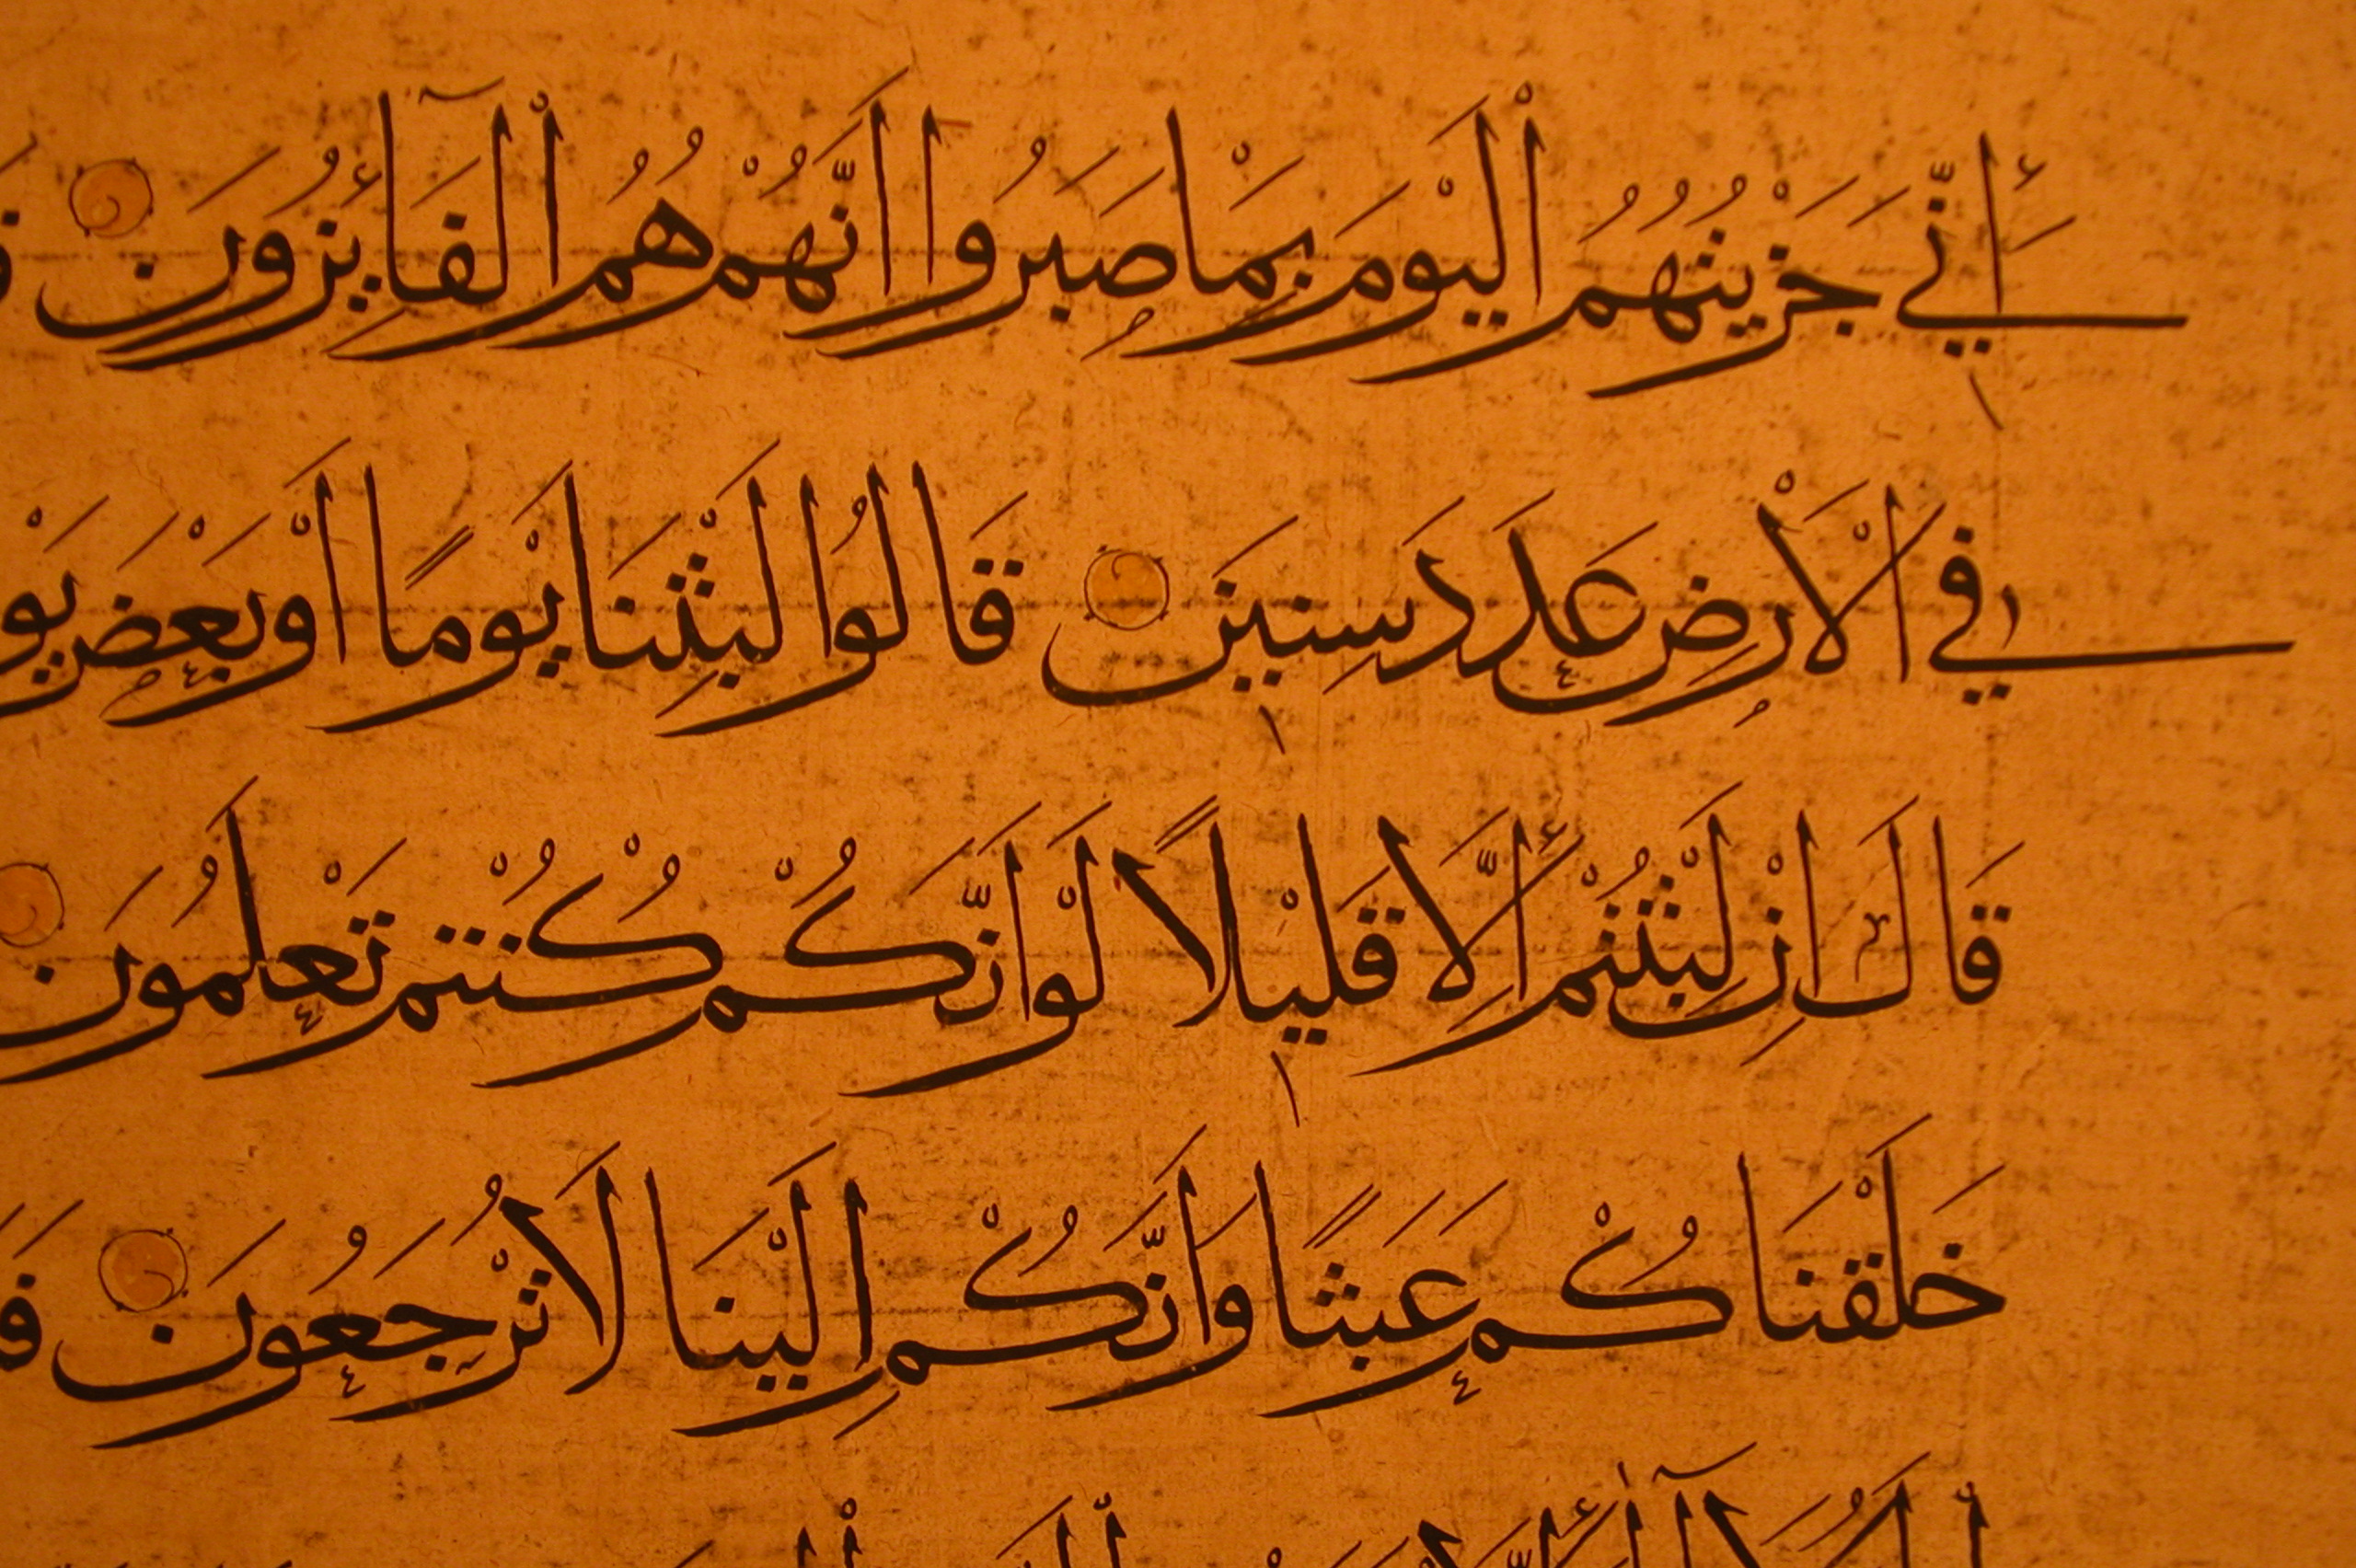 أَنِّي جَزَيْتُهُمُ الْيَوْمَ بِمَا صَبَرُوا أَنَّهُمْ هُمُ الْفَآئِزُونَ
فِي الْأَرْضِ عَدَدَ سِنِينَ قَالُوا لَبِثْنَا يَوْمًا أَوْ بَعْضَ يَوْ
قَالَ إِنْ لَبِثْتُمْ إِلَّا قَلِيْلًا لَوْ أَنَّكُمْ كُنْتُمْ تَعْلَمُونَ
خَلَقْنَاكُمْ عَبَثًا وَأَنَّكُمْ إِلَيْنَا لَا تُرْجَعُونَ فَ